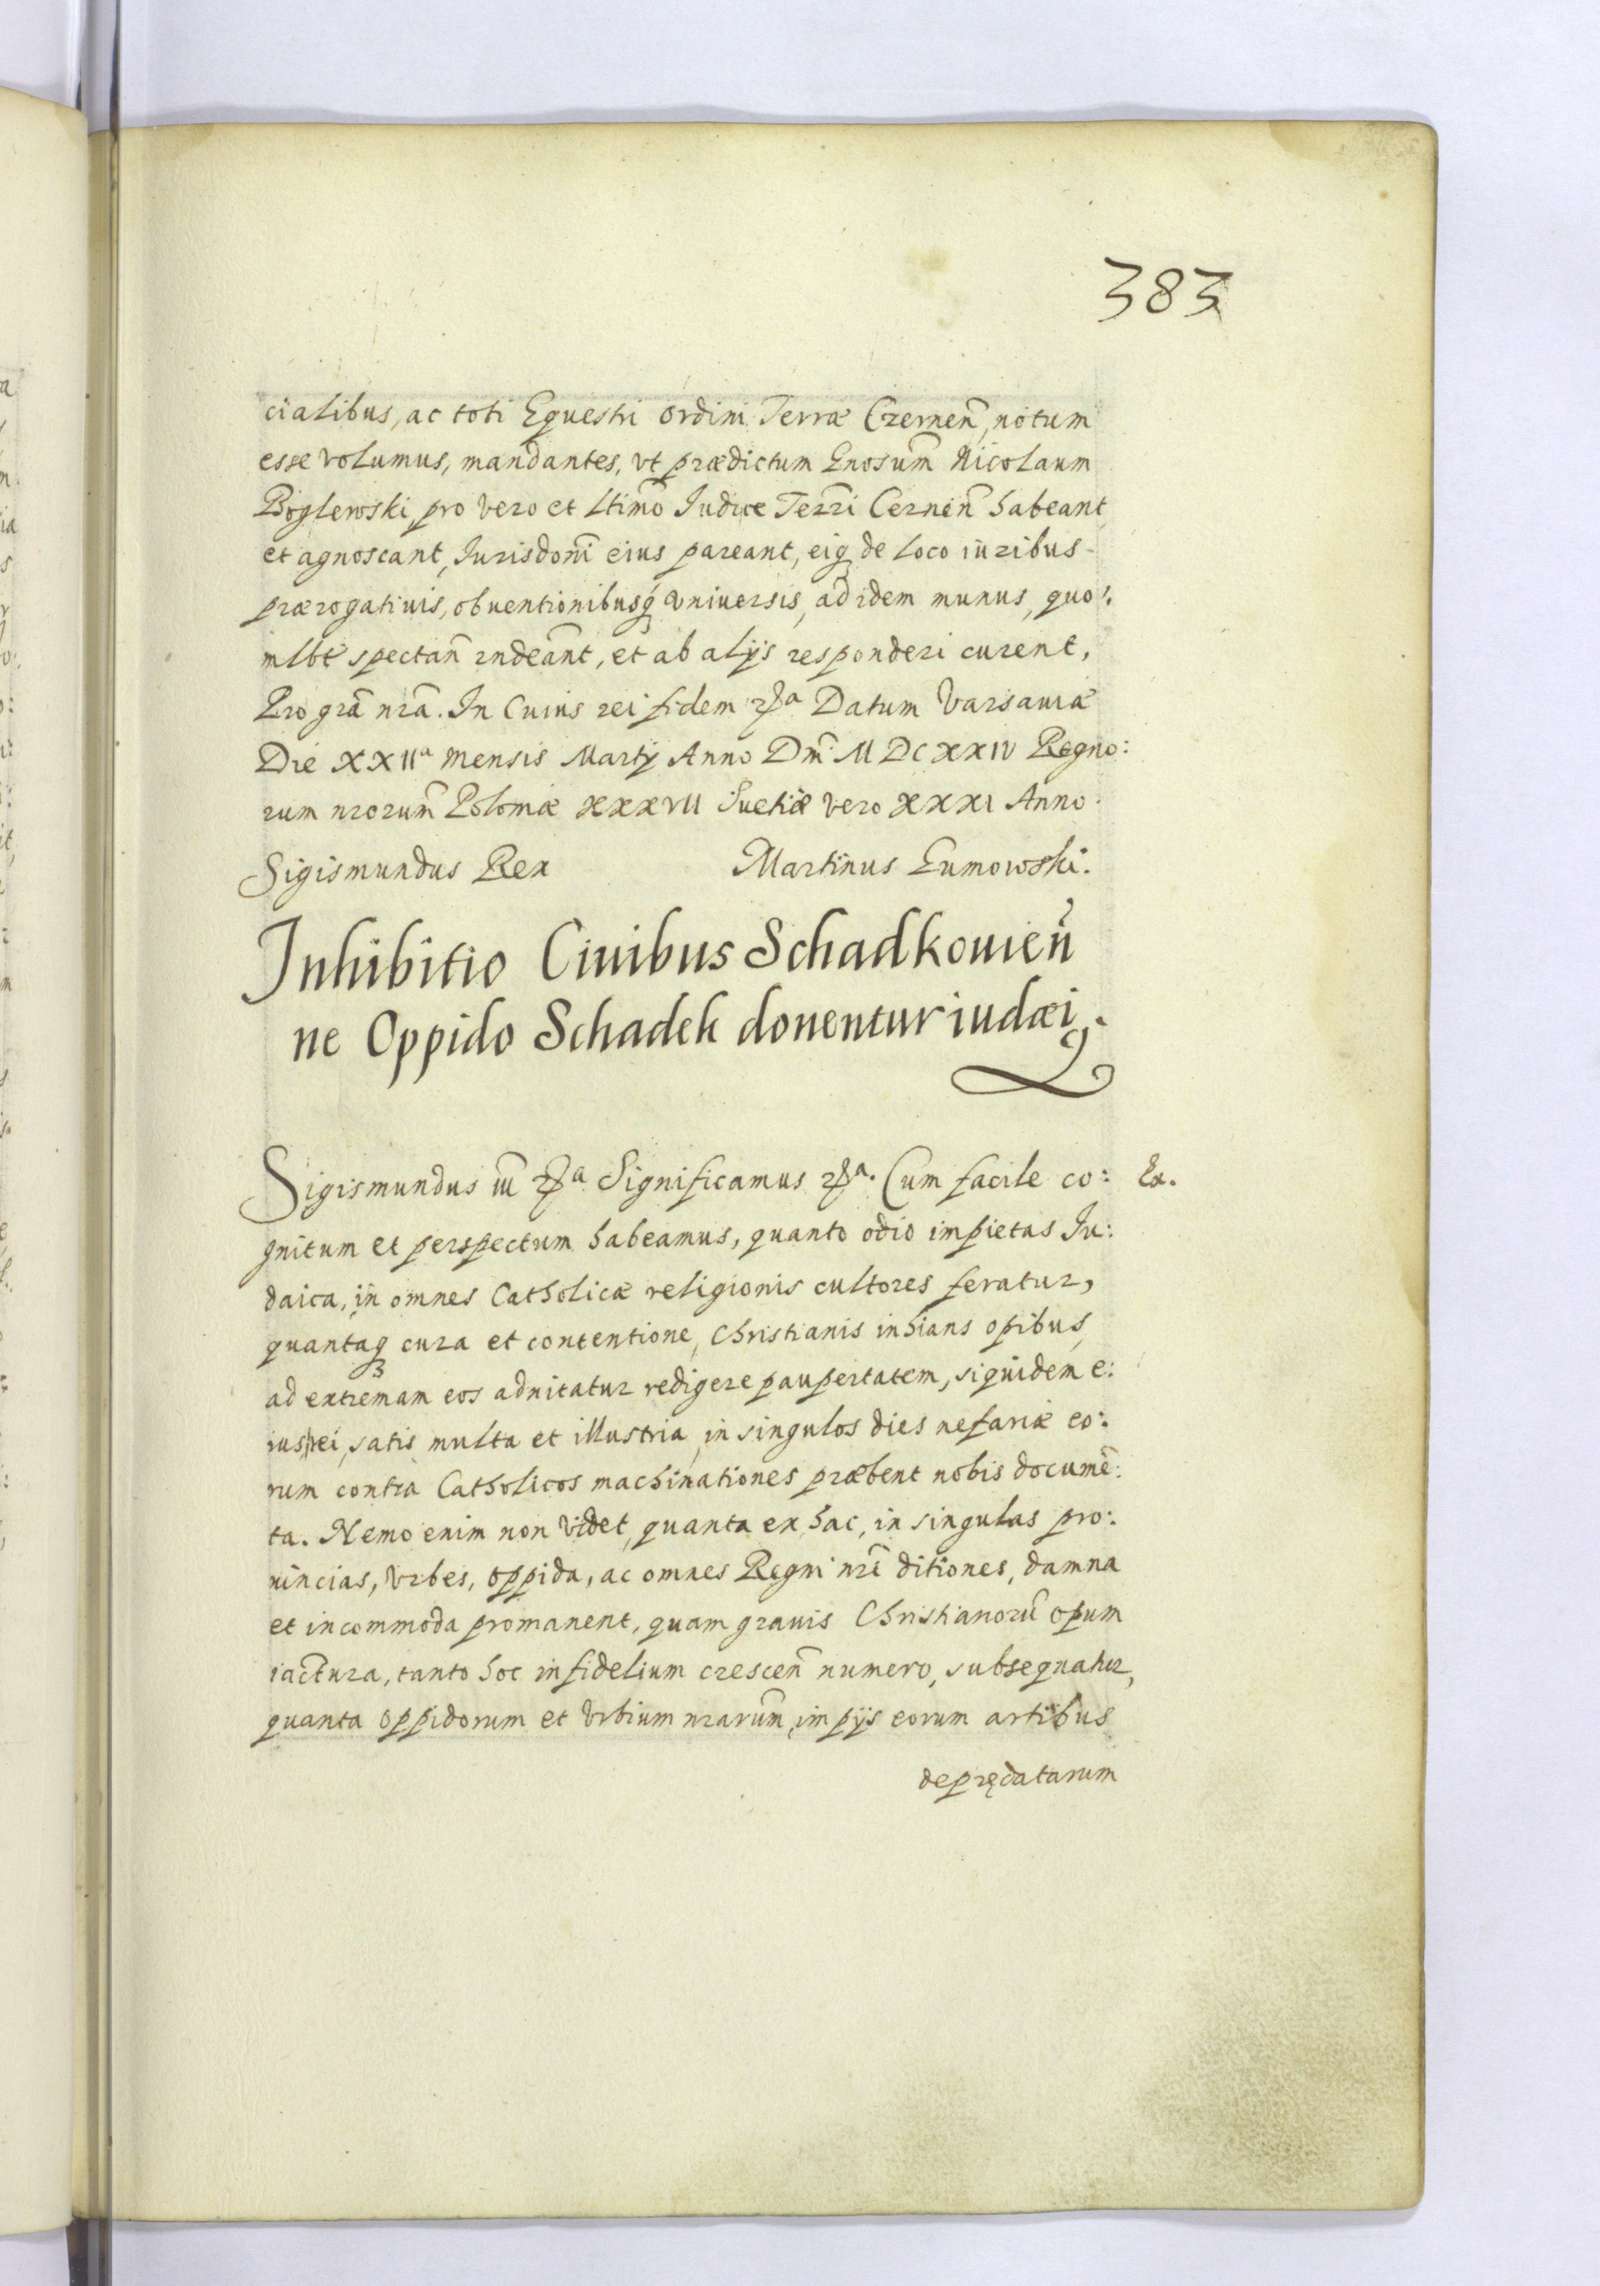 383
cialibus, ac toti Equestri Ordini Terræ Czernen̄, notum
esse volumus, mandantes, vt prædictum Gnosum̄ Nicolaum
Boglewski pro vero et ltimo̅ Iudice Terrī Cernen̄ habeant
et agnoscant, Iurisdoni̅ eius pareant, eiq̢ de loco iuribus
prærogatiuis, obuentionibusq̢ vniuersis, ad idem munus, quo:
mlbt̅ spectan̄ rndea̅nt, et ab alijs responderi curent,
Pro gra̅ nra̅. In Cuius rei fidem &a Datum Varsauiæ
Die XXIIa mensis Martij Anno Dni̅ MDCXXIV Regno:
rum nrorum̄ Poloniæ XXXVII Suetiæ vero XXXI Anno.
Sigismundus Rex Martinus Zumowski.
Inhibitio Ciuibus Schadkouien̄
ne Oppido Schadek donentur iudæi.
Sigismundus iii &a Significamus &a. Cum facile co: Ex.
gnitum et perspectum habeamus, quanto odio impietas Iu:
daica, in omnes Catholicæ religionis cultores feratur,
quantaq̢ cura et contentione, Christianis inhians opibus,
ad extremam eos adnitatur redigere paupertatem, siquidem e:
ius rei, satis multa et illustria, in singulos dies nefariæ eo:
rum contra Catholicos machinationes præbent nobis docume̅:
ta. Nemo enim non videt, quanta ex hac, in singulas pro:
uincias, vrbes, oppida, ac omnes Regni nri̅ ditiones, damna
et incommoda promanent, quam grauis Christianoru̅ opum
iactura, tanto hoc infidelium crescen̄ numero, subsequatur,
quanta oppidorum et vrbium nrarum̄, impijs eorum artibus
depredatarum